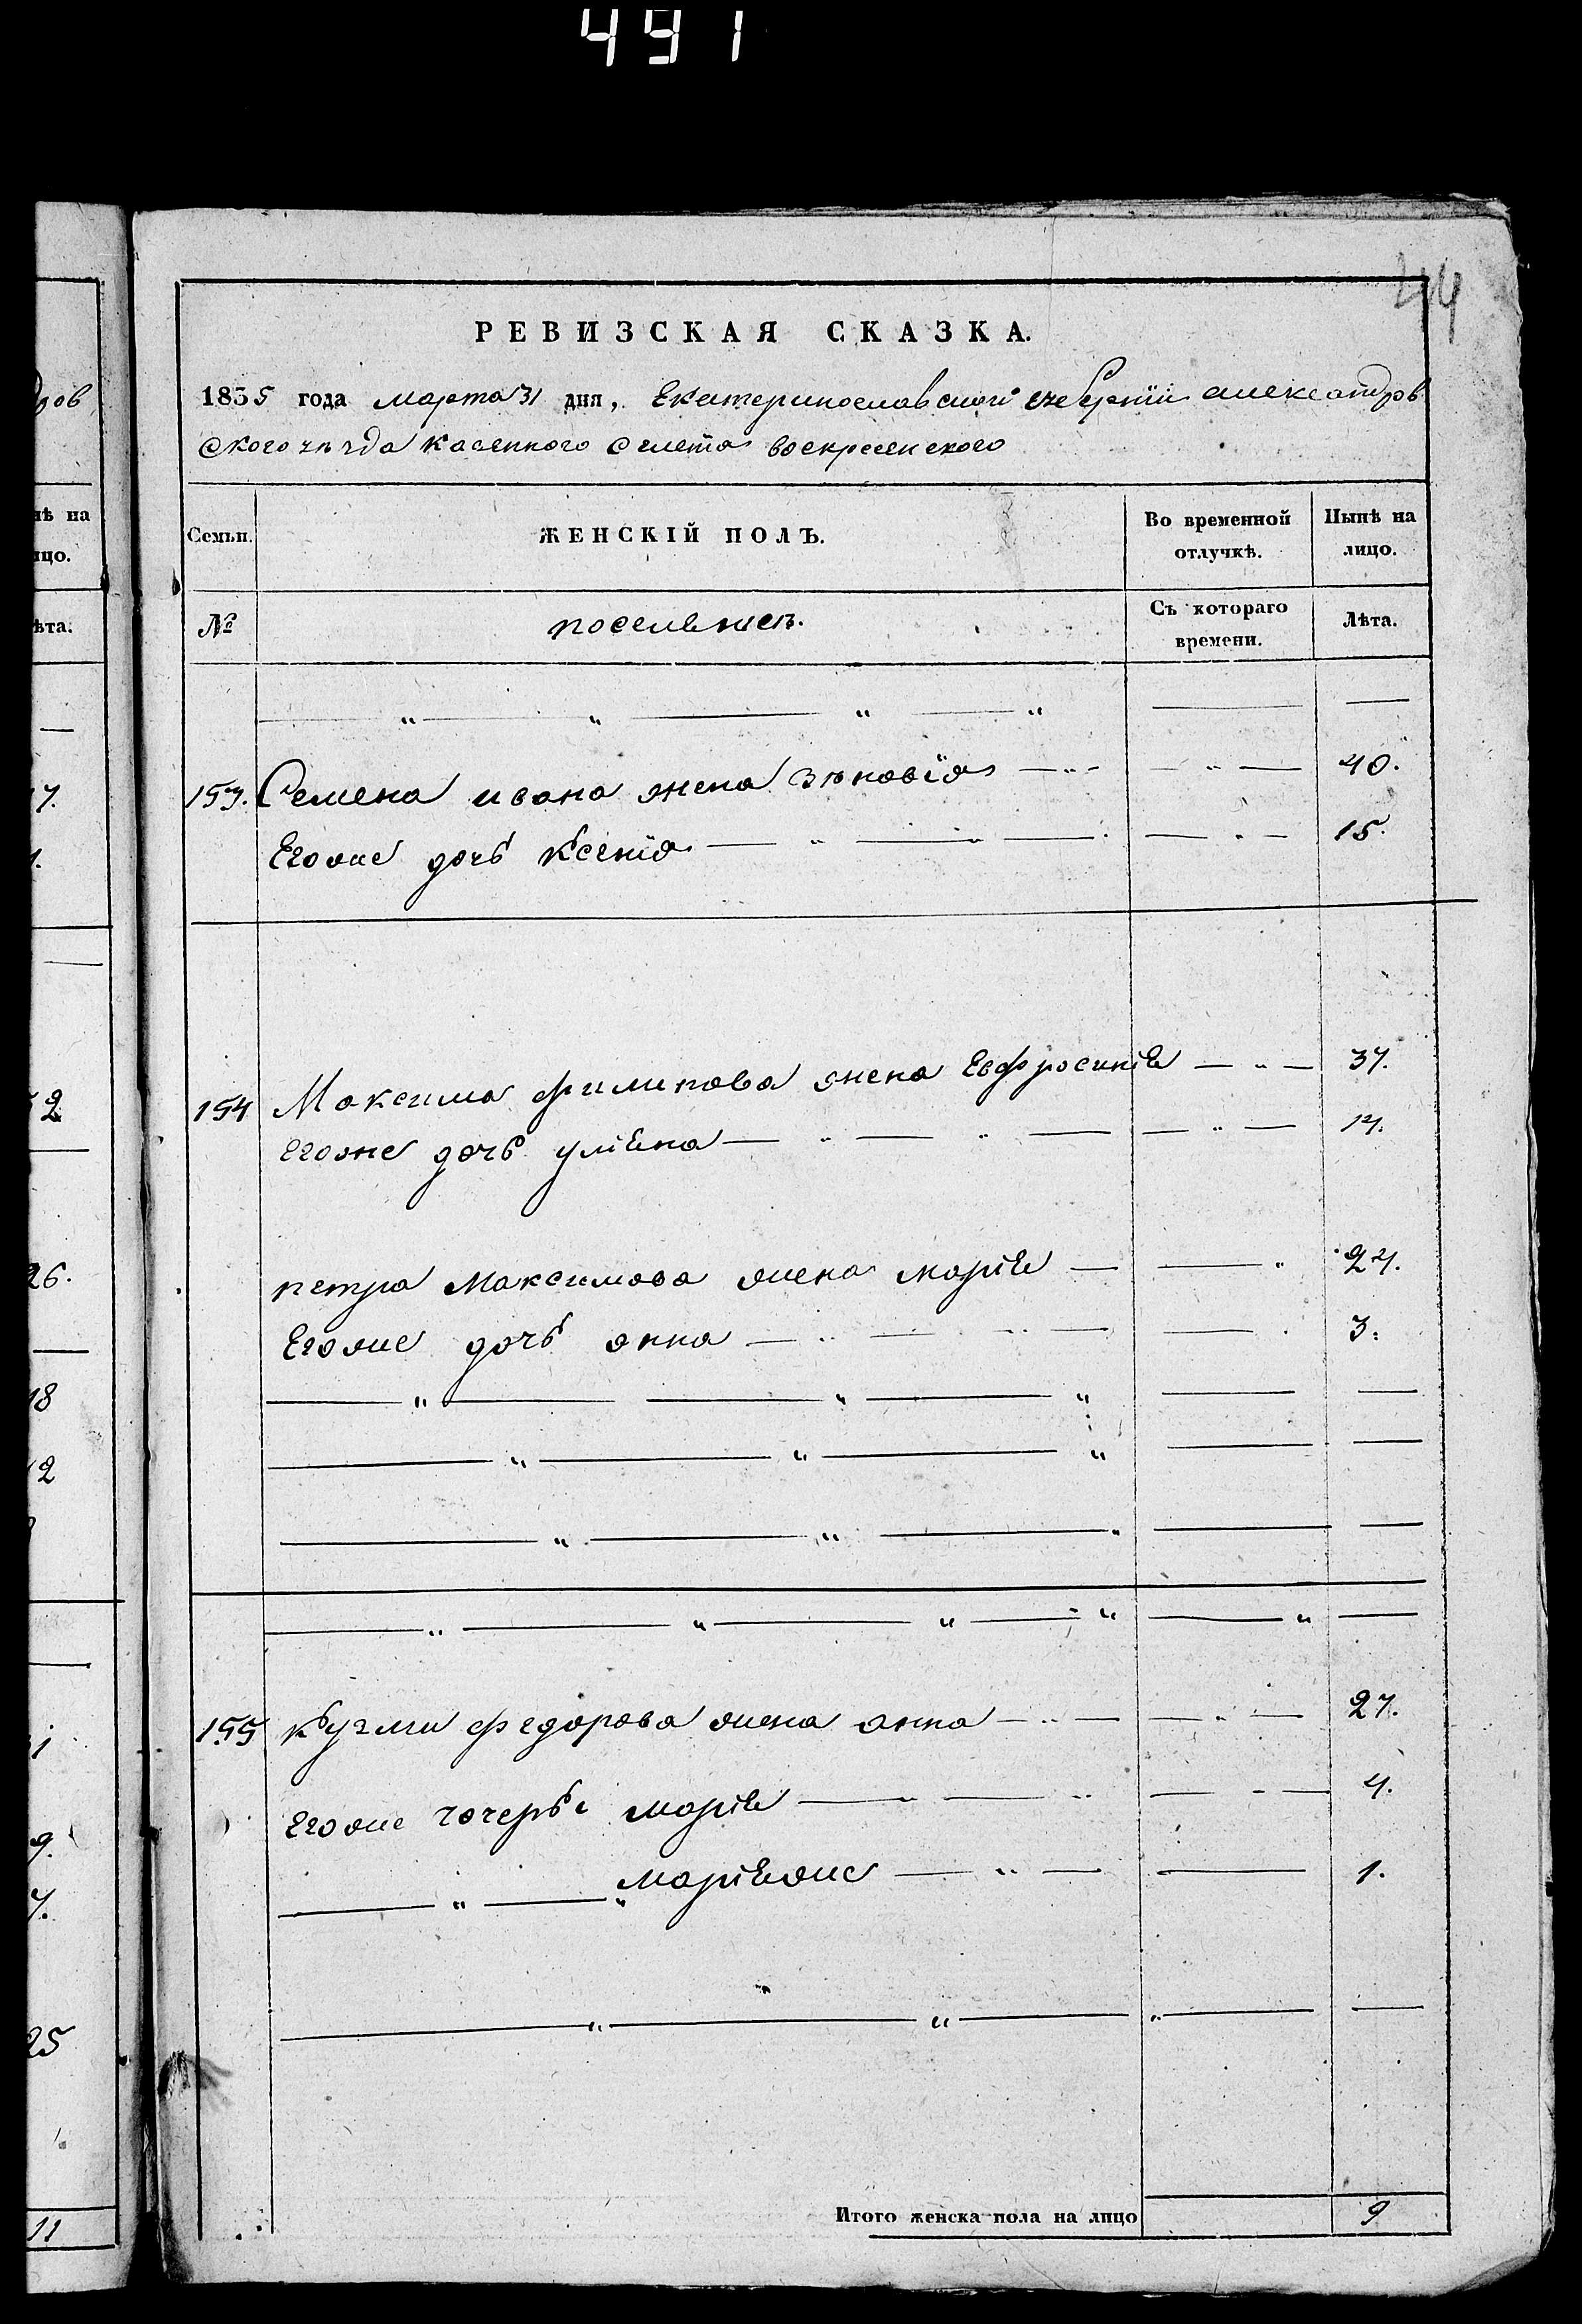 491
44
РЕВИЗСКАЯ СКАЗКА.
1835 года марта 31 дня, Екатеринославской губернии александров
ского уезда казенного селения воскресенского
Семьи. ЖЕНСКІЙ ПОЛЪ. Во временной отлучкѣ. Нынѣ на лицо.
№ поселянен. Съ котораго времени. Лѣта.
153. Семена ивана жена Зѣновія 40.
Егоже дочь Ксенія 15.
154 Максима филипова жена Евфросинія 37.
егоже дочь уліяна 14.
петра Максимова жена марія 24.
Егоже дочь анна 3.
155 кузми федорова жена анна 27.
Егоже дочери марія 4.
маріяже 1.
Итого женска пола на лицо 9
дров
нѣ на
лицо.
лѣта.
7.
1.
2
26.
18
12
1
9.
7.
25
11